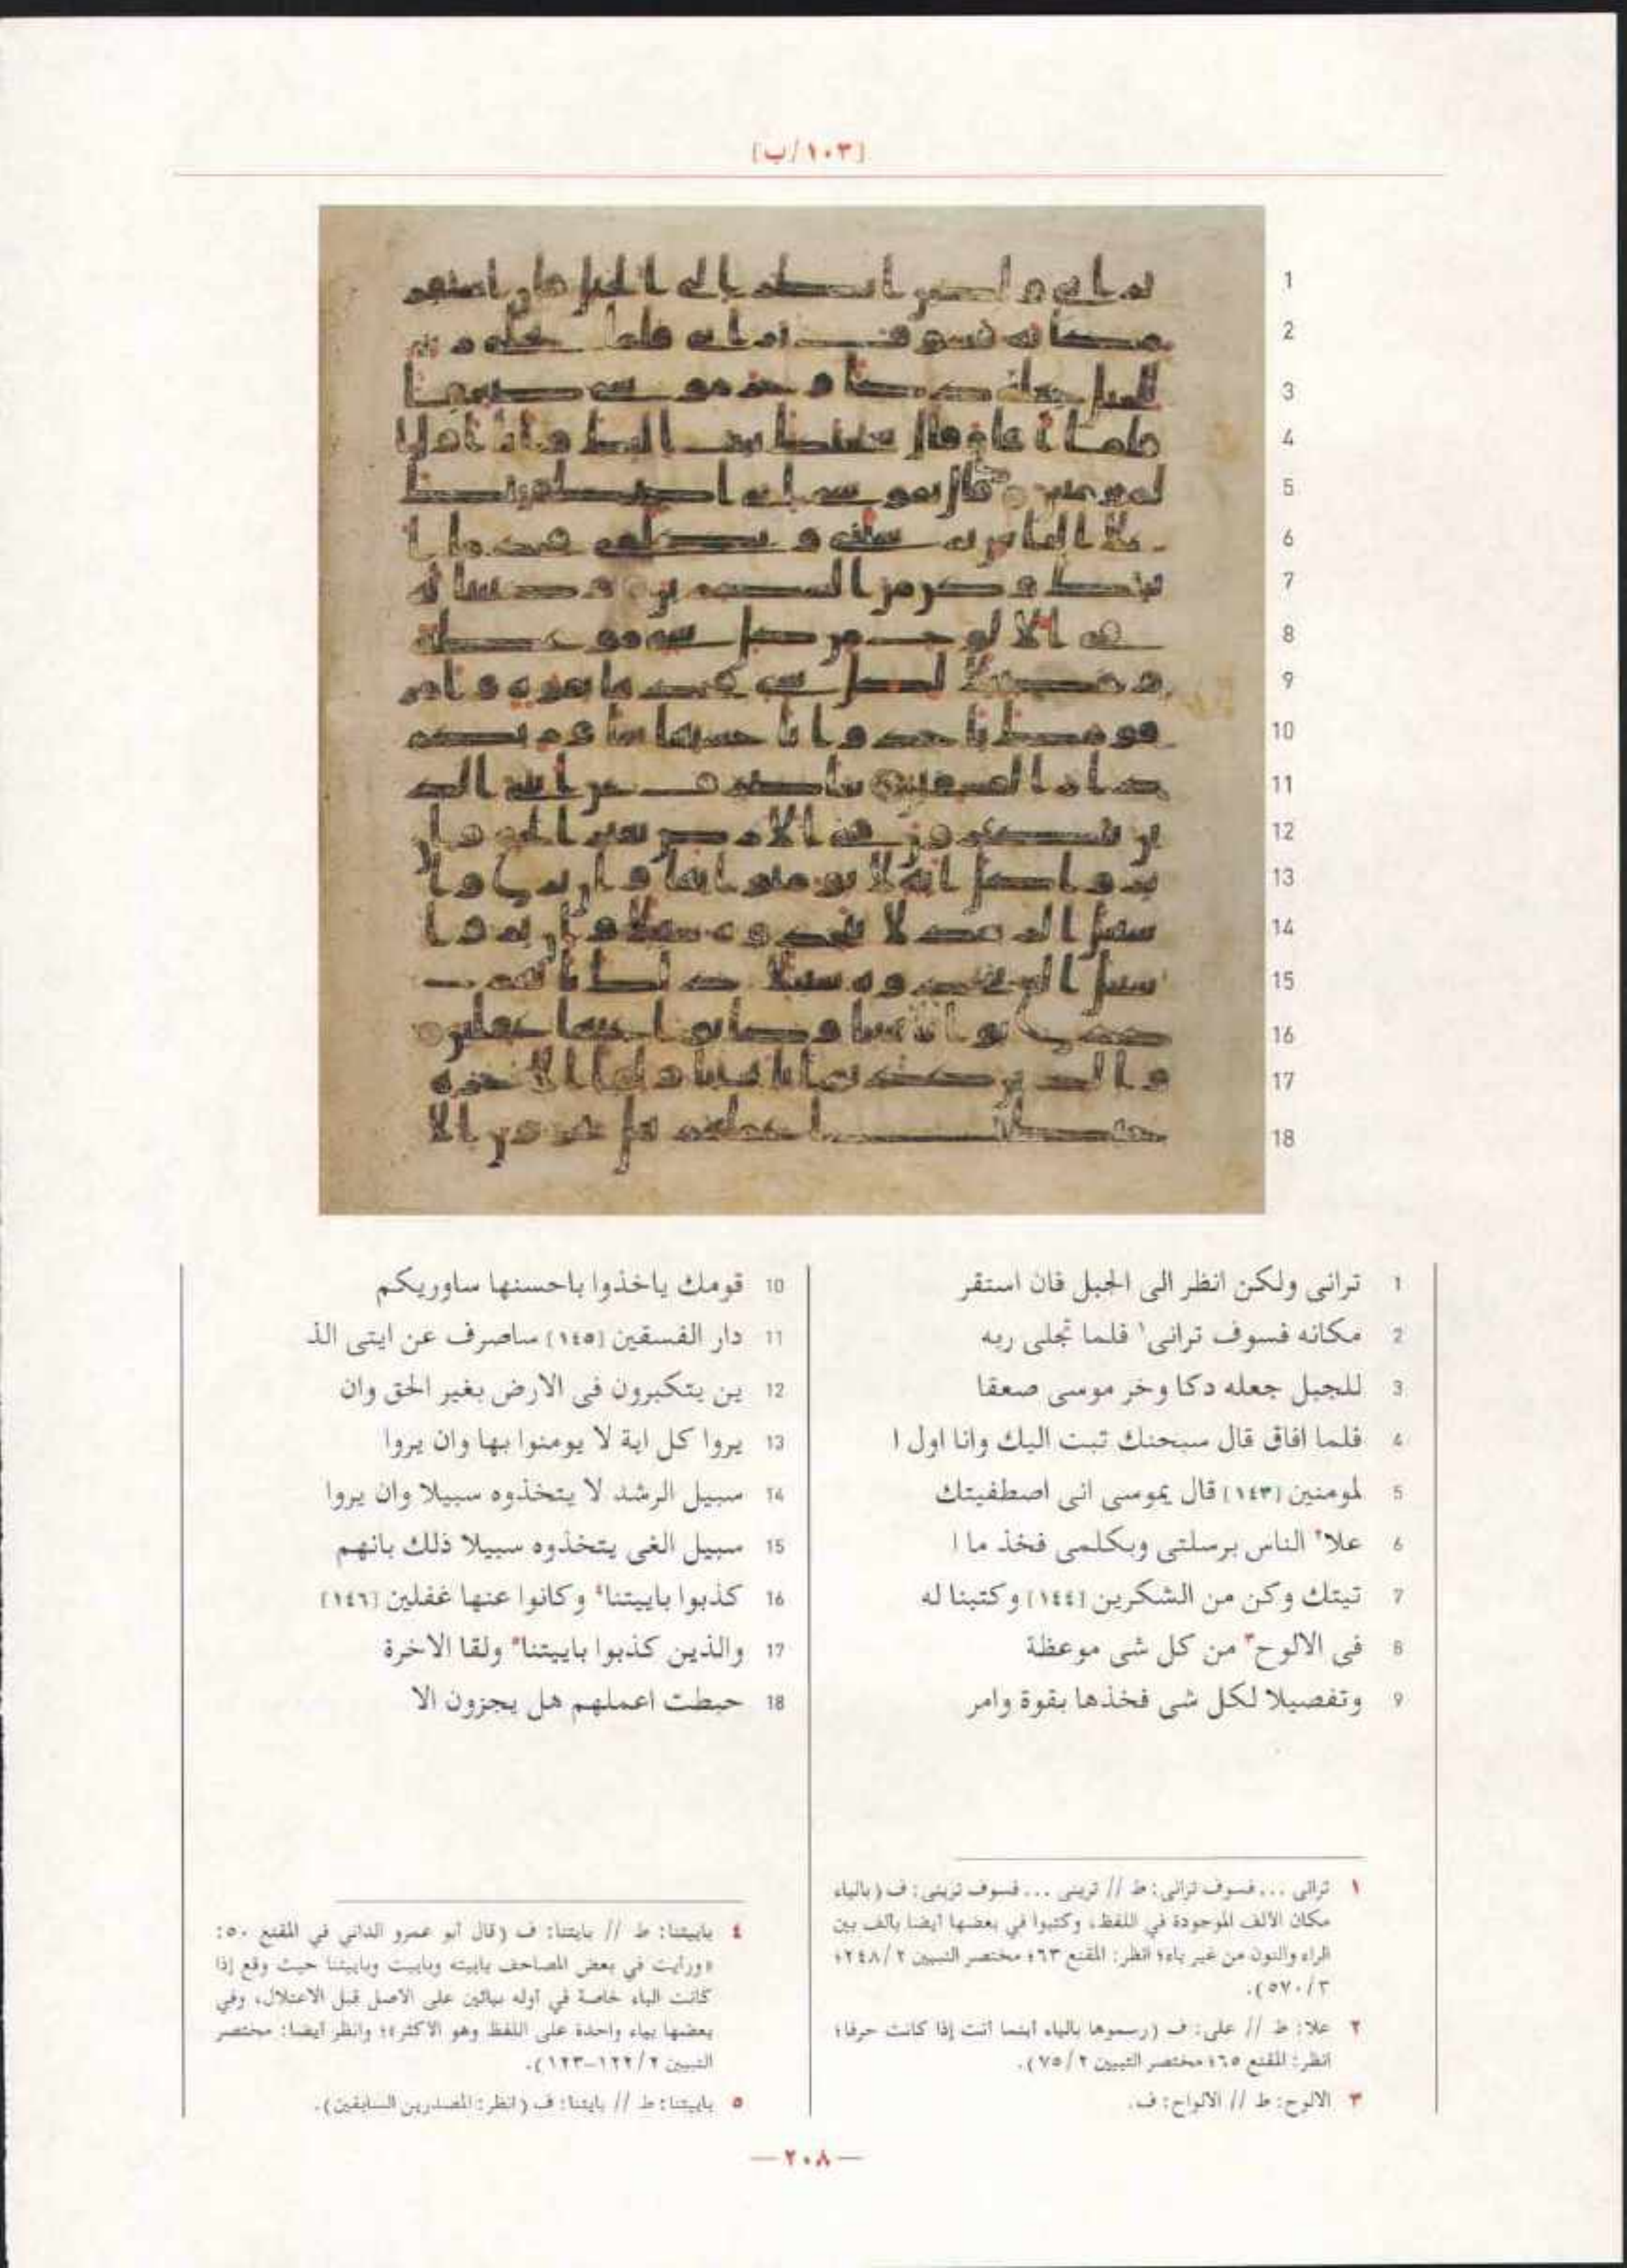 [١٠٣/ب]
1 ترانى ولكن انظر الى الجبل فان استقر
2 مكانه فسوف ترانى١ فلما تجلى ربه
3 للجبل جعله دكا وخر موسى صعقا
4 فلما افاق قال سبحنك تبت اليك وانا اول ا
5 لمومنين [١٤٣] قال يموسى انى اصطفيتك
6 علا٢ الناس برسلتى وبكلمى فخذ ما ا
7 تيتك وكن من الشكرين [١٤٤] وكتبنا له
8 فى الالوح٣ من كل شى موعظة
9 وتفصيلا لكل شى فخذها بقوة وامر
10 قومك ياخذوا باحسنها ساوريكم
11 دار الفسقين [١٤٥] ساصرف عن ايتى الذ
12 ين يتكبرون فى الارض بغير الحق وان
13 يروا كل اية لا يومنوا بها وان يروا
14 سبيل الرشد لا يتخذوه سبيلا وان يروا
15 سبيل الغى يتخذوه سبيلا ذلك بانهم
16 كذبوا باييتنا٤ وكانوا عنها غفلين [١٤٦]
17 والذين كذبوا باييتنا٥ ولقا الاخرة
18 حبطت اعملهم هل يجزون الا
١ ترانى ... فسوف ترانى: ط // ترينى ... فسوف ترينى: ف (بالياء
مكان الألف الموجودة في اللفظ، وكتبوا في بعضها أيضا بألف بين
الراء والنون من غير ياء؛ انظر: المقنع ٦٣؛ مختصر التبيين ٢/٢٤٨؛
٣/٥٧٠).
٢ علا: ط // على: ف (رسموها بالياء أينما أتت إذا كانت حرفا؛
انظر: المقنع ٦٥؛ مختصر التبيين ٢/٧٥).
٣ الالوح: ط // الالواح: ف.
٤ باييتنا: ط // بايتنا: ف (قال أبو عمرو الداني في المقنع ٥٠:
«ورأيت في بعض المصاحف باييته وباييت وباييتنا حيث وقع إذا
كانت الباء خاصة في أوله بيائين على الأصل قبل الاعتلال، وفي
بعضها بياء واحدة على اللفظ وهو الأكثر»؛ وانظر أيضا: مختصر
التبيين ٢/١٢٢-١٢٣).
٥ باييتنا: ط // بايتنا: ف (انظر: المصدرين السابقين).
— ٢٠٨ —